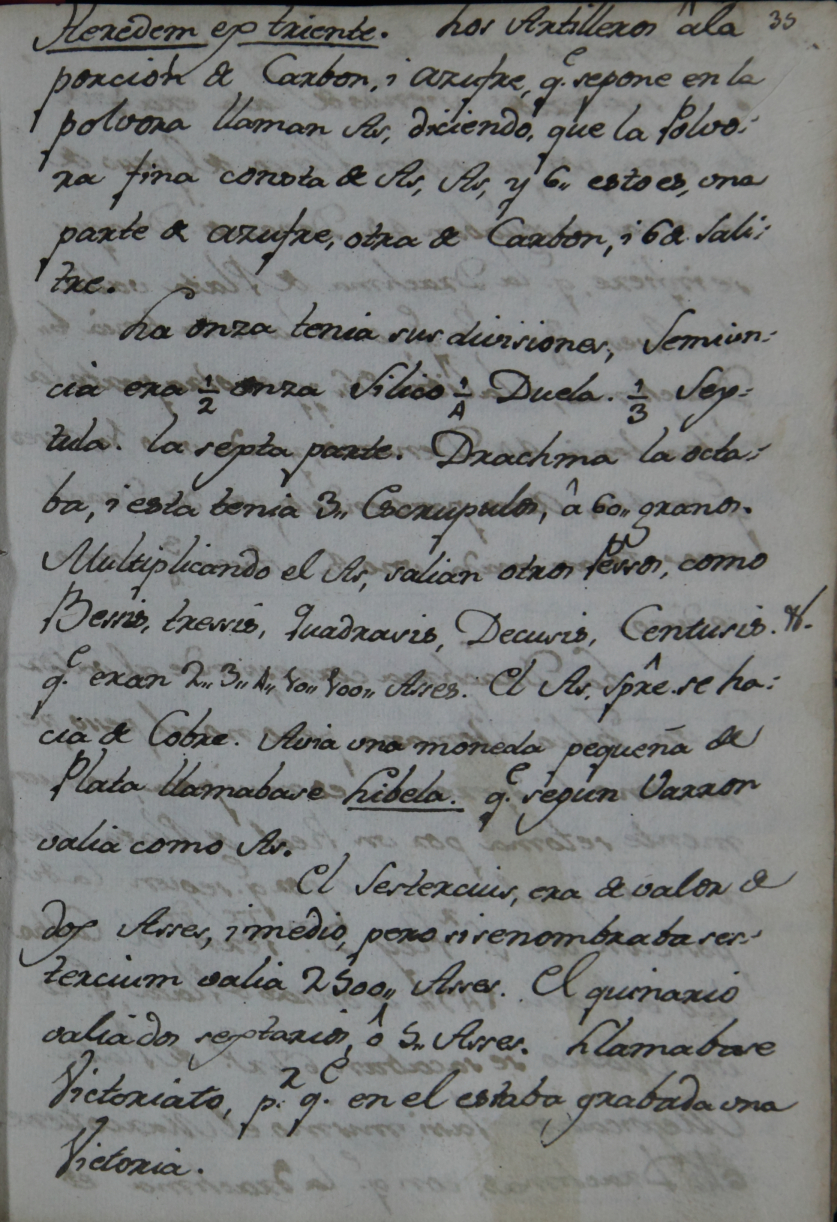 Heredem ex triente. Los Artilleros âla 35
porcion de Carbon, i azufre, q.e se pone en la
polvora llaman As, diciendo, que la Polvo:
ra fina consta de As, As, y 6,, esto es, una
parte de azufre, otra de Carbon, i 6 de Sali:
tre.
La onza tenia sus divisiones, Semiun:
cia era 1/2 onza Silico 1/4 Duela. 1/3 Sex:
tula. la sexta parte. Drachma la octa:
ba, i esta tenia 3,, Escrupulos, â 60,, granos.
Multiplicando el As, salian otros Pessos, como
Bessis, tressis, Quadrasis, Decusis, Centusis. &.
q.e eran 2,, 3,, 4,, 10,, 100,, Asses. El As, sprê. se ha:
cia de Cobre. Avia una moneda pequeña de
Plata llamabase Libela. q.e segun Varron
valia como As.
El Sestercius, era de valor de
dos Asses, i medio, pero si se nombraba ses:
tercium valia 2500,, Asses. El quinario
valia dos sextarios, ô 5,, Asses. Llamabase
Victoriato, p.r q.e en el estaba grabada una
Victoria.